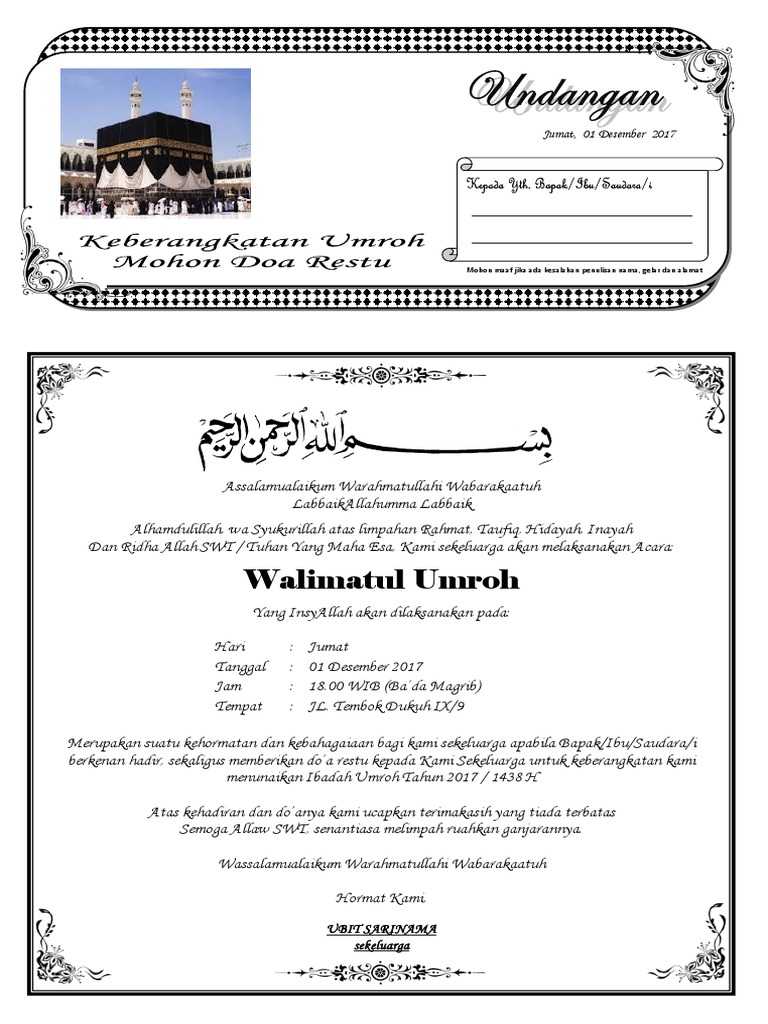 Undangan
Jumat, 01 Desember 2017
Kepada Yth. Bapak/Ibu/Saudara/i
Keberangkatan Umroh
Mohon Doa Restu
Mohon maaf jika ada kesalakan penulisan nama, gelar dan alamat
بِسْمِ اللهِ الرَّحْمٰنِ الرَّحِيْمِ
Assalamualaikum Warahmatullahi Wabarakaatuh
LabbaikAllahumma Labbaik
Alhamdulillah, wa Syukurillah atas limpahan Rahmat, Taufiq, Hidayah, Inayah
Dan Ridha Allah SWT / Tuhan Yang Maha Esa, Kami sekeluarga akan melaksanakan Acara:
Walimatul Umroh
Yang InsyAllah akan dilaksanakan pada:
Hari : Jumat
Tanggal : 01 Desember 2017
Jam : 18.00 WIB (Ba'da Magrib)
Tempat : JL. Tembok Dukuh IX/9
Merupakan suatu kehormatan dan kebahagaiaan bagi kami sekeluarga apabila Bapak/Ibu/Saudara/i
berkenan hadir, sekaligus memberikan do'a restu kepada Kami Sekeluarga untuk keberangkatan kami
menunaikan Ibadah Umroh Tahun 2017 / 1438 H
Atas kehadiran dan do'anya kami ucapkan terimakasih yang tiada terbatas
Semoga Allaw SWT, senantiasa melimpah ruahkan ganjarannya.
Wassalamualaikum Warahmatullahi Wabarakaatuh
Hormat Kami,
UBIT SARINAMA
sekeluarga